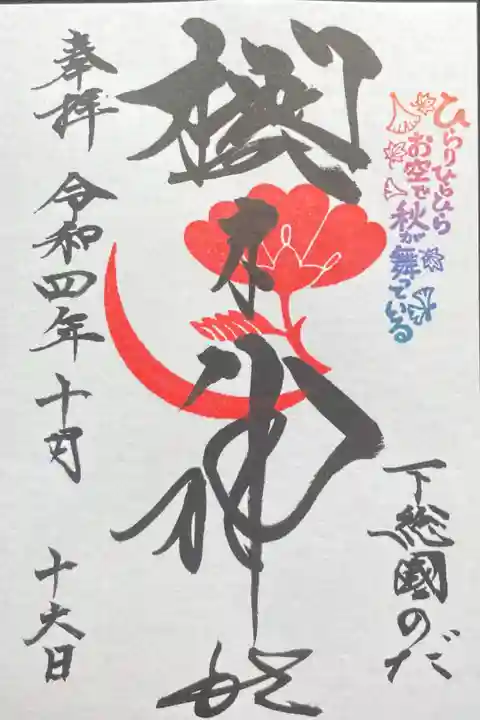 ひらりひらひら
お空で秋が舞っている
下総國のだ
櫻木神社
奉拝 令和四年十月 十六日